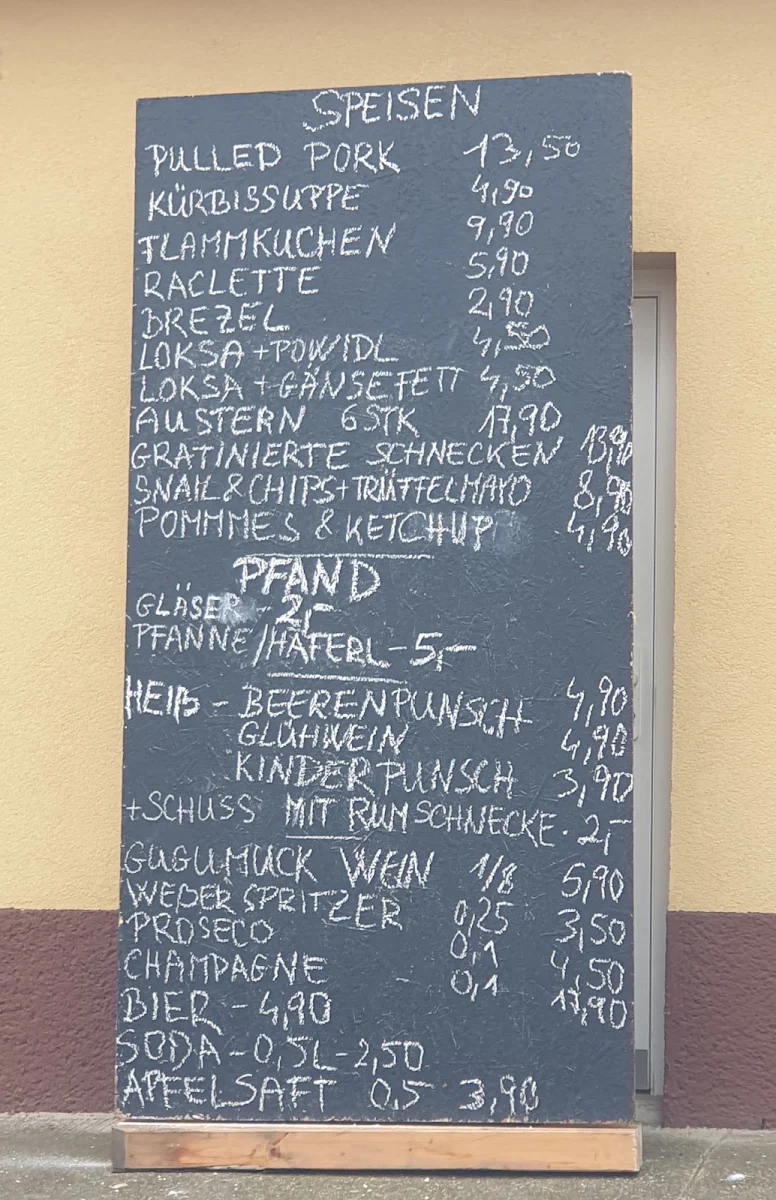 SPEISEN
PULLED PORK 13,50
KÜRBISSUPPE 4,90
FLAMMKUCHEN 9,90
RACLETTE 5,90
BREZEL 2,90
LOKSA + POWIDL 4,50
LOKSA + GÄNSEFETT 4,50
AUSTERN 6STK 17,90
GRATINIERTE SCHNECKEN 13,90
SNAIL & CHIPS + TRÜFFELMAYO 8,90
POMMMES & KETCHUP 4,90
PFAND
GLÄSER - 2,-
PFANNE/HÄFERL - 5,-
HEIß - BEERENPUNSCH 4,90
GLÜHWEIN 4,90
KINDERPUNSCH 3,90
+SCHUSS MIT RUMSCHNECKE · 2,-
GUGUMUCK WEIN 1/8 5,90
WEißER SPRITZER 0,25 3,50
PROSECO 0,1 4,50
CHAMPAGNE 0,1 17,90
BIER - 4,90
SODA - 0,5L - 2,50
APFELSAFT 0,5 3,90